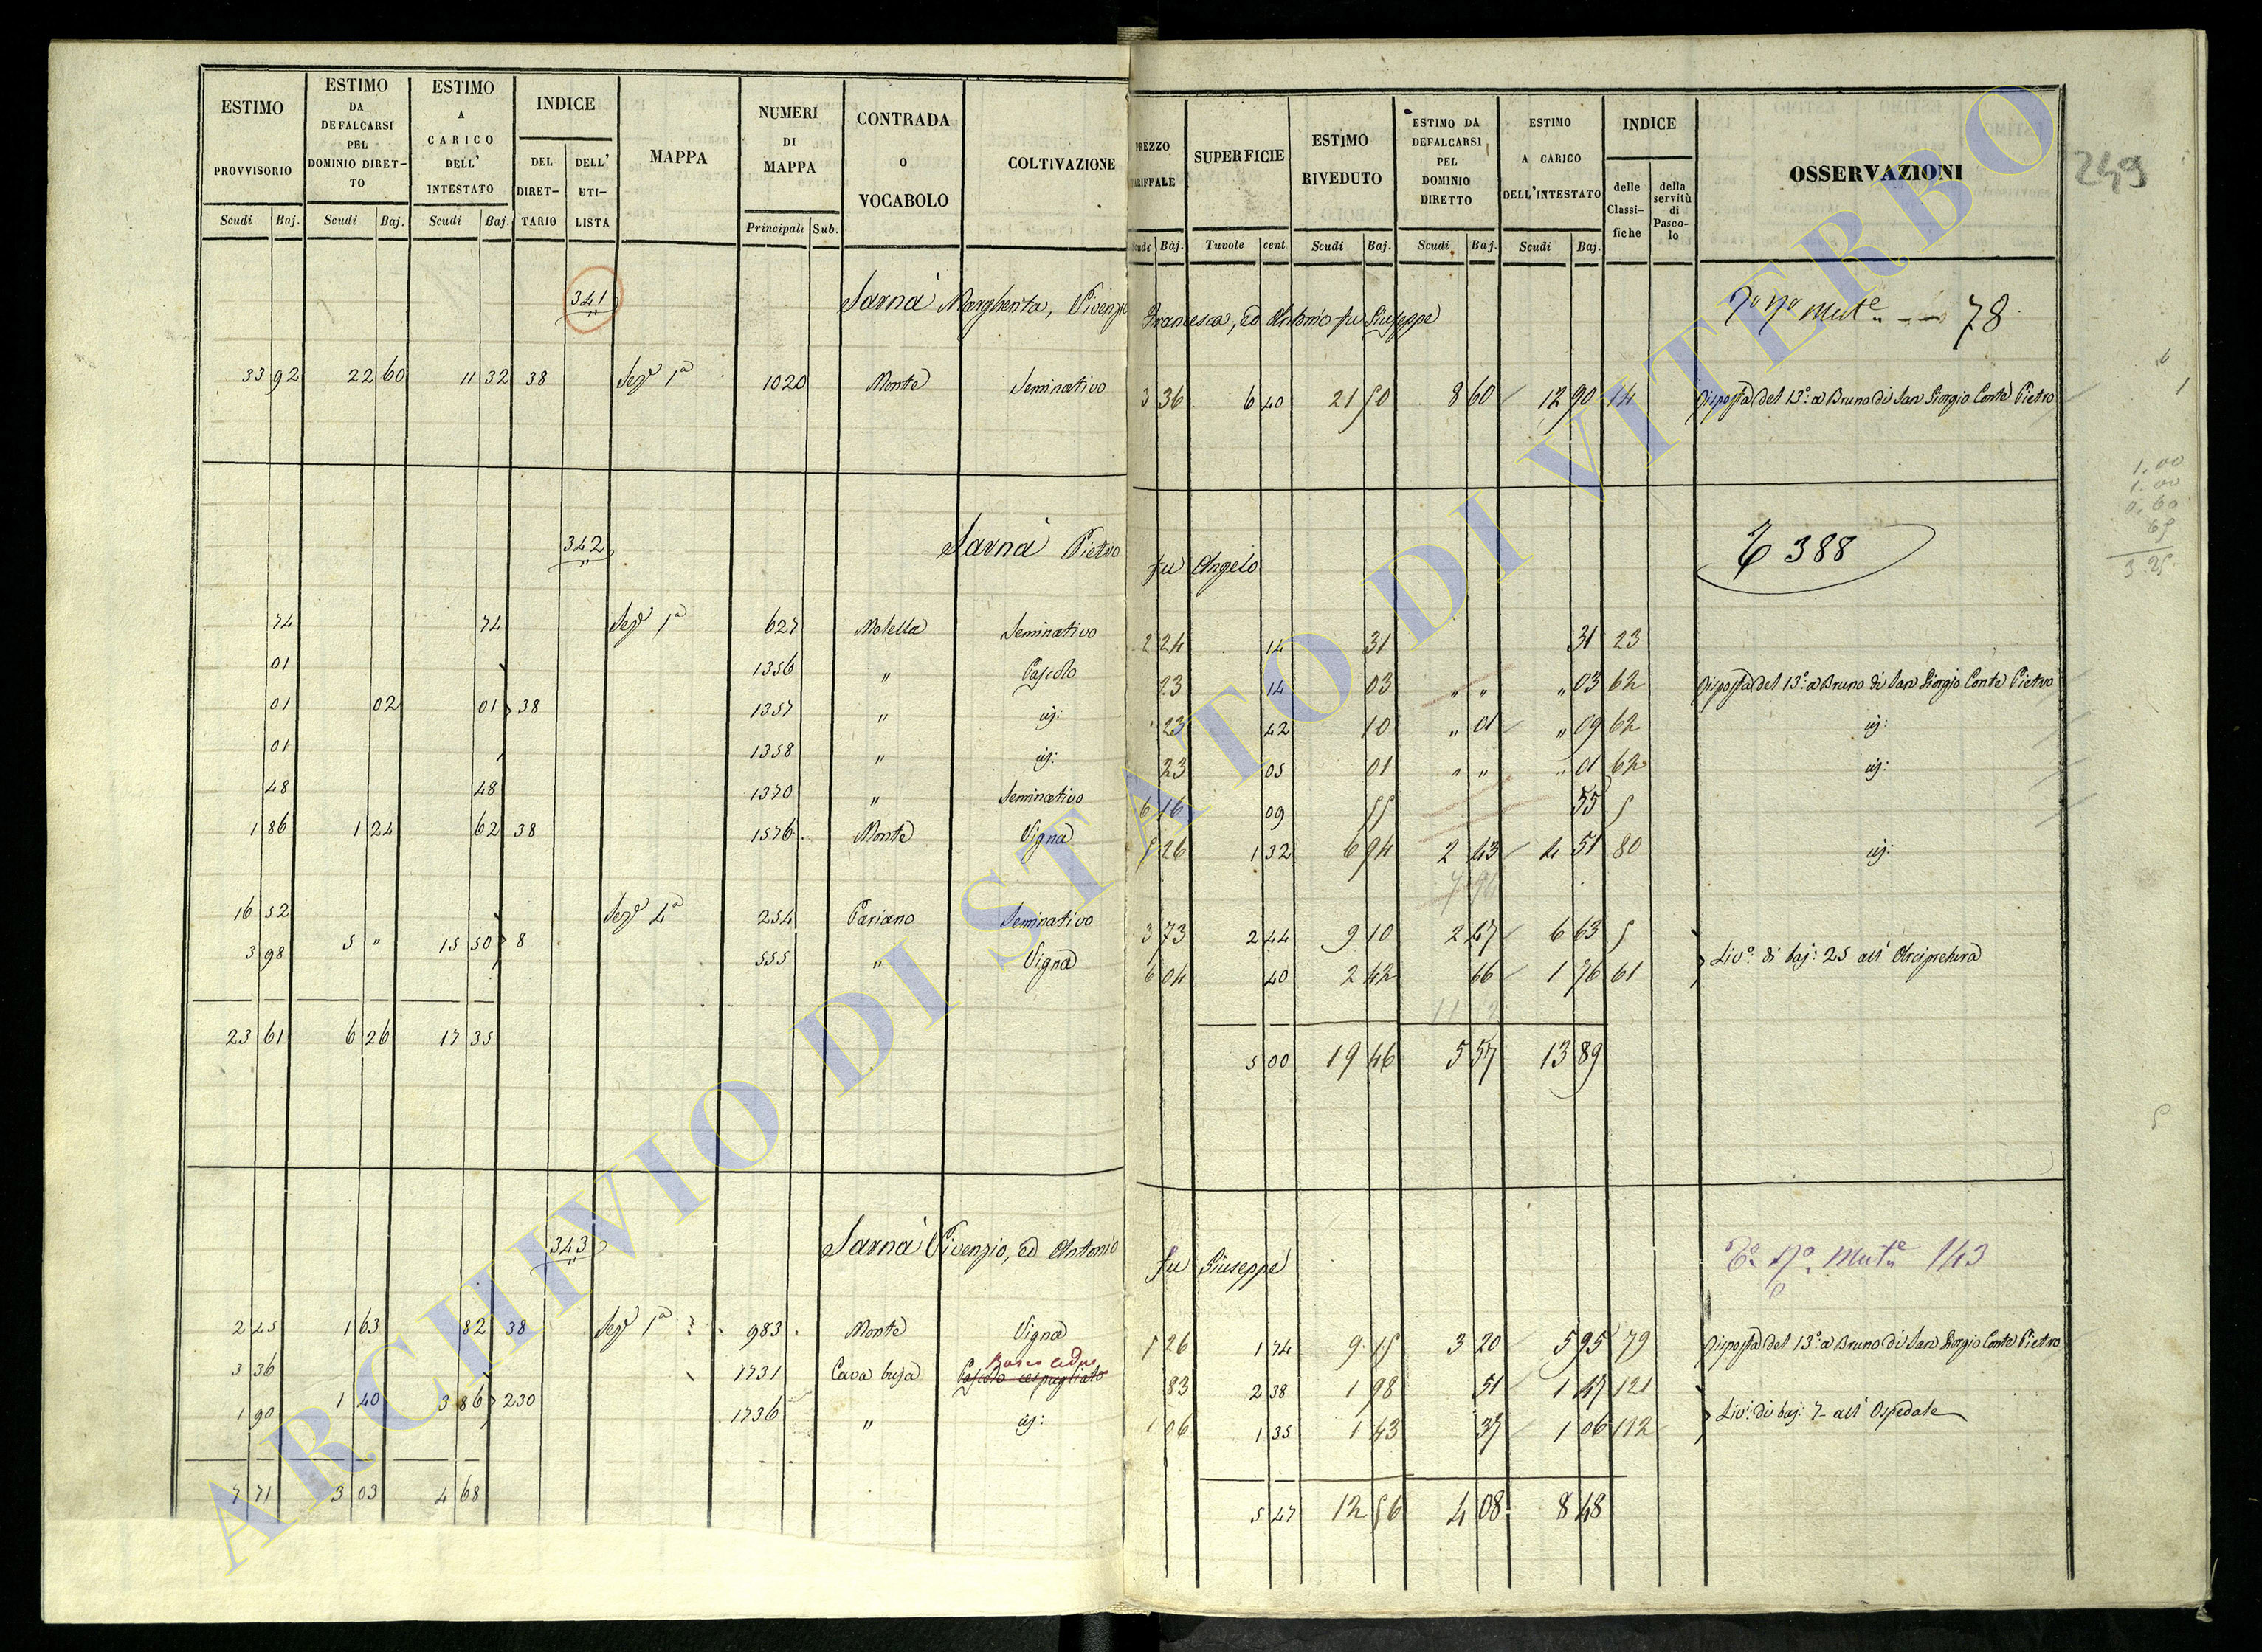 ESTIMO PROVVISORIO Scudi Baj. ESTIMO DA DEFALCARSI PEL DOMINIO DIRETTO Scudi Baj. ESTIMO A CARICO DELL' INTESTATO Scudi Baj. INDICE DEL DIRETTARIO DELL' UTILISTA MAPPA NUMERI DI MAPPA Principali Sub. CONTRADA O VOCABOLO COLTIVAZIONE PREZZO TARIFFALE Scudi Baj. SUPERFICIE Tavole cent ESTIMO RIVEDUTO Scudi Baj. ESTIMO DA DEFALCARSI PEL DOMINIO DIRETTO Scudi Baj. ESTIMO A CARICO DELL'INTESTATO Scudi Baj. INDICE delle Classifiche della servitù di Pascolo OSSERVAZIONI
249
341 Sarnà Margherita, Vivenzio Francesca, ed Antonio fu Giuseppe 78
33 92 22 60 11 32 38 Sez.e 1a 1020 Monte Seminativo 3 36 6 40 21 50 8 60 12 90 14 Risposta del 13.o a Bruno di San Giorgio Conte Pietro
1.00
1.00
0.60
65
3.25
342 Sarnà Pietro fu Angelo 388
74 74 Sez.e 1a 627 Molella Seminativo 2 24 14 31 31 23
01 1356 " Pascolo 23 14 03 " " " 03 62 Risposta del 13.o a Bruno di San Giorgio Conte Pietro
01 02 01 38 1357 " id: 23 42 10 " 01 " 09 62 id:
01 1358 " id: 23 05 01 " " " 01 62 id:
48 48 1370 " Seminativo 6 16 09 55 55 5
1 86 1 24 62 38 1576 Monte Vigna 5 26 1 32 6 94 2 43 4 51 80 id:
16 52 Sez.e 4a 254 Pariano Seminativo 3 73 2 44 9 10 2 47 6 63 5
5 " 15 50 8 Liv.o di baj: 25 all' Arcipretura
3 98 555 " Vigna 6 04 40 2 42 66 1 76 61
23 61 6 26 17 35 5 00 19 46 5 57 13 89
343 Sarnà Vivenzio, ed Antonio fu Giuseppe 143
2 45 1 63 82 38 Sez.e 1a 983 Monte Vigna 5 26 1 74 9 15 3 20 5 95 79 Risposta del 13.o a Bruno di San Giorgio Conte Pietro
Bosco ceduo
3 36 1731 Cava buja Pascolo cespugliato 83 2 38 1 98 51 1 47 121
1 40 3 86 230 Liv.o di baj: 7 all' Ospedale
1 90 1736 " id: 1 06 1 35 1 43 37 1 06 112
7 71 3 03 4 68 5 47 12 56 4 08 8 48
ARCHIVIO DI STATO DI VITERBO